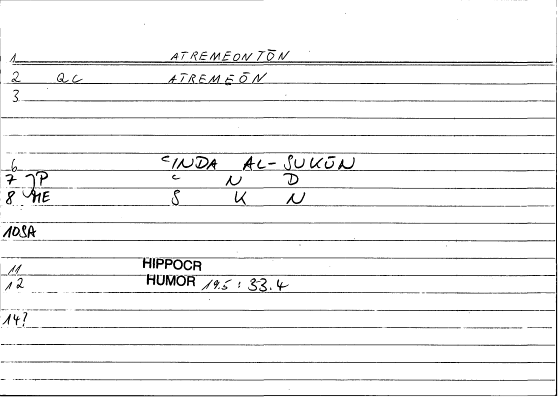 1 ATREMEONTŌN
2 QC ATREMEŌN
3
6 ʿINDA AL-SUKŪN
7 P ʿ N D
8 ME S K N
10SA
11 HIPPOCR
12 HUMOR 19.5 : 33.4
14?